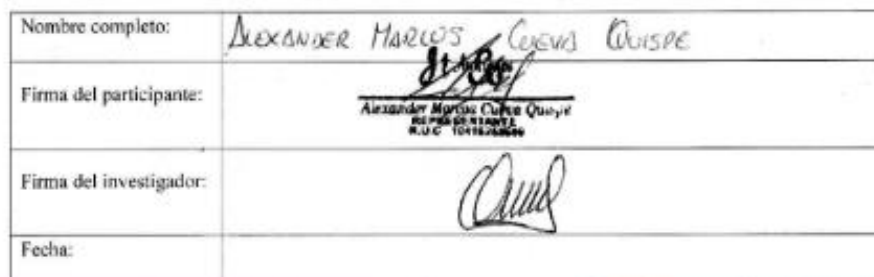 Nombre completo: ALEXANDER MARCOS CUEVA QUISPE
Firma del participante:
Alexander Marcos Cueva Quispe
REPRESENTANTE
R.U.C
Firma del investigador:
Fecha: